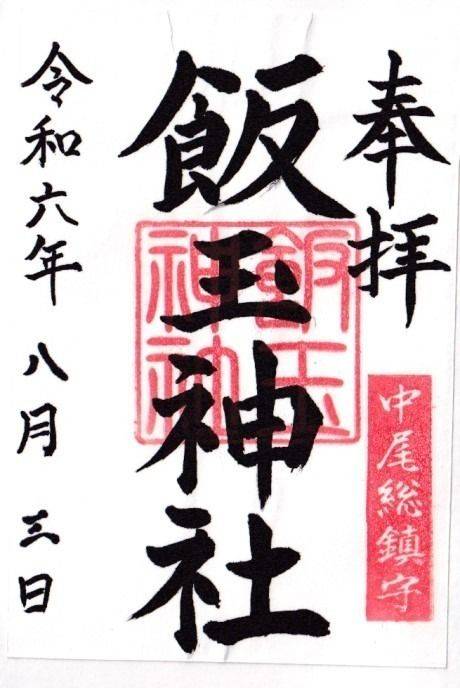 奉拝
中尾総鎮守
飯玉神社
飯玉神社
令和六年 八月 三日